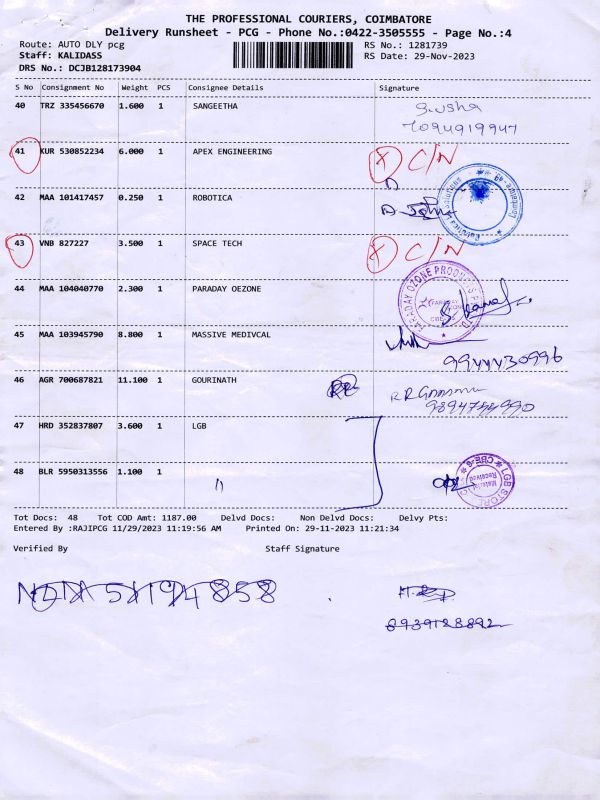 THE PROFESSIONAL COURIERS, COIMBATORE
Delivery Runsheet - PCG - Phone No.:0422-3505555 - Page No.:4
Route: AUTO DLY pcg RS No.: 1281739
Staff: KALIDASS RS Date: 29-Nov-2023
DRS No.: DCJB128173904
S No Consignment No Weight PCS Consignee Details Signature
40 TRZ 335456670 1.600 1 SANGEETHA S.usha
7094919947
41 KUR 530852234 6.000 1 APEX ENGINEERING X C/N
42 MAA 101417457 0.250 1 ROBOTICA
43 VNB 827227 3.500 1 SPACE TECH X C/N
44 MAA 104040770 2.300 1 PARADAY OEZONE
FARADAY OZONE PRODUCTS
45 MAA 103945790 8.800 1 MASSIVE MEDIVCAL
9944430996
46 AGR 700687821 11.100 1 GOURINATH
47 HRD 352837807 3.600 1 LGB
48 BLR 5950313556 1.100 1 "
LGB STORE
Material Received
Tot Docs: 48 Tot COD Amt: 1187.00 Delvd Docs: Non Delvd Docs: Delvy Pts:
Entered By :RAJIPCG 11/29/2023 11:19:56 AM Printed On: 29-11-2023 11:21:34
Verified By Staff Signature
8939128892